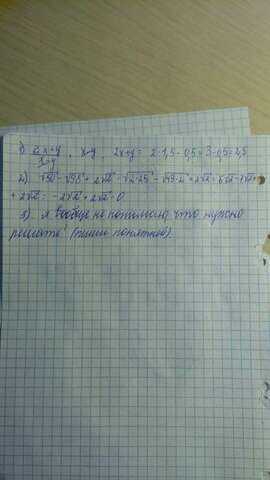 1) 2x+y/x-y · x-y · 2x+y = 2·1,5-0,5=3-0,5=2,5
2) √50-√98+2√2=√2·25-√49·2+2√2=5√2-7√2+
+2√2=-2√2+2√2=0
3) я вообще не понимаю, что нужно
решать! (пиши понятнее).